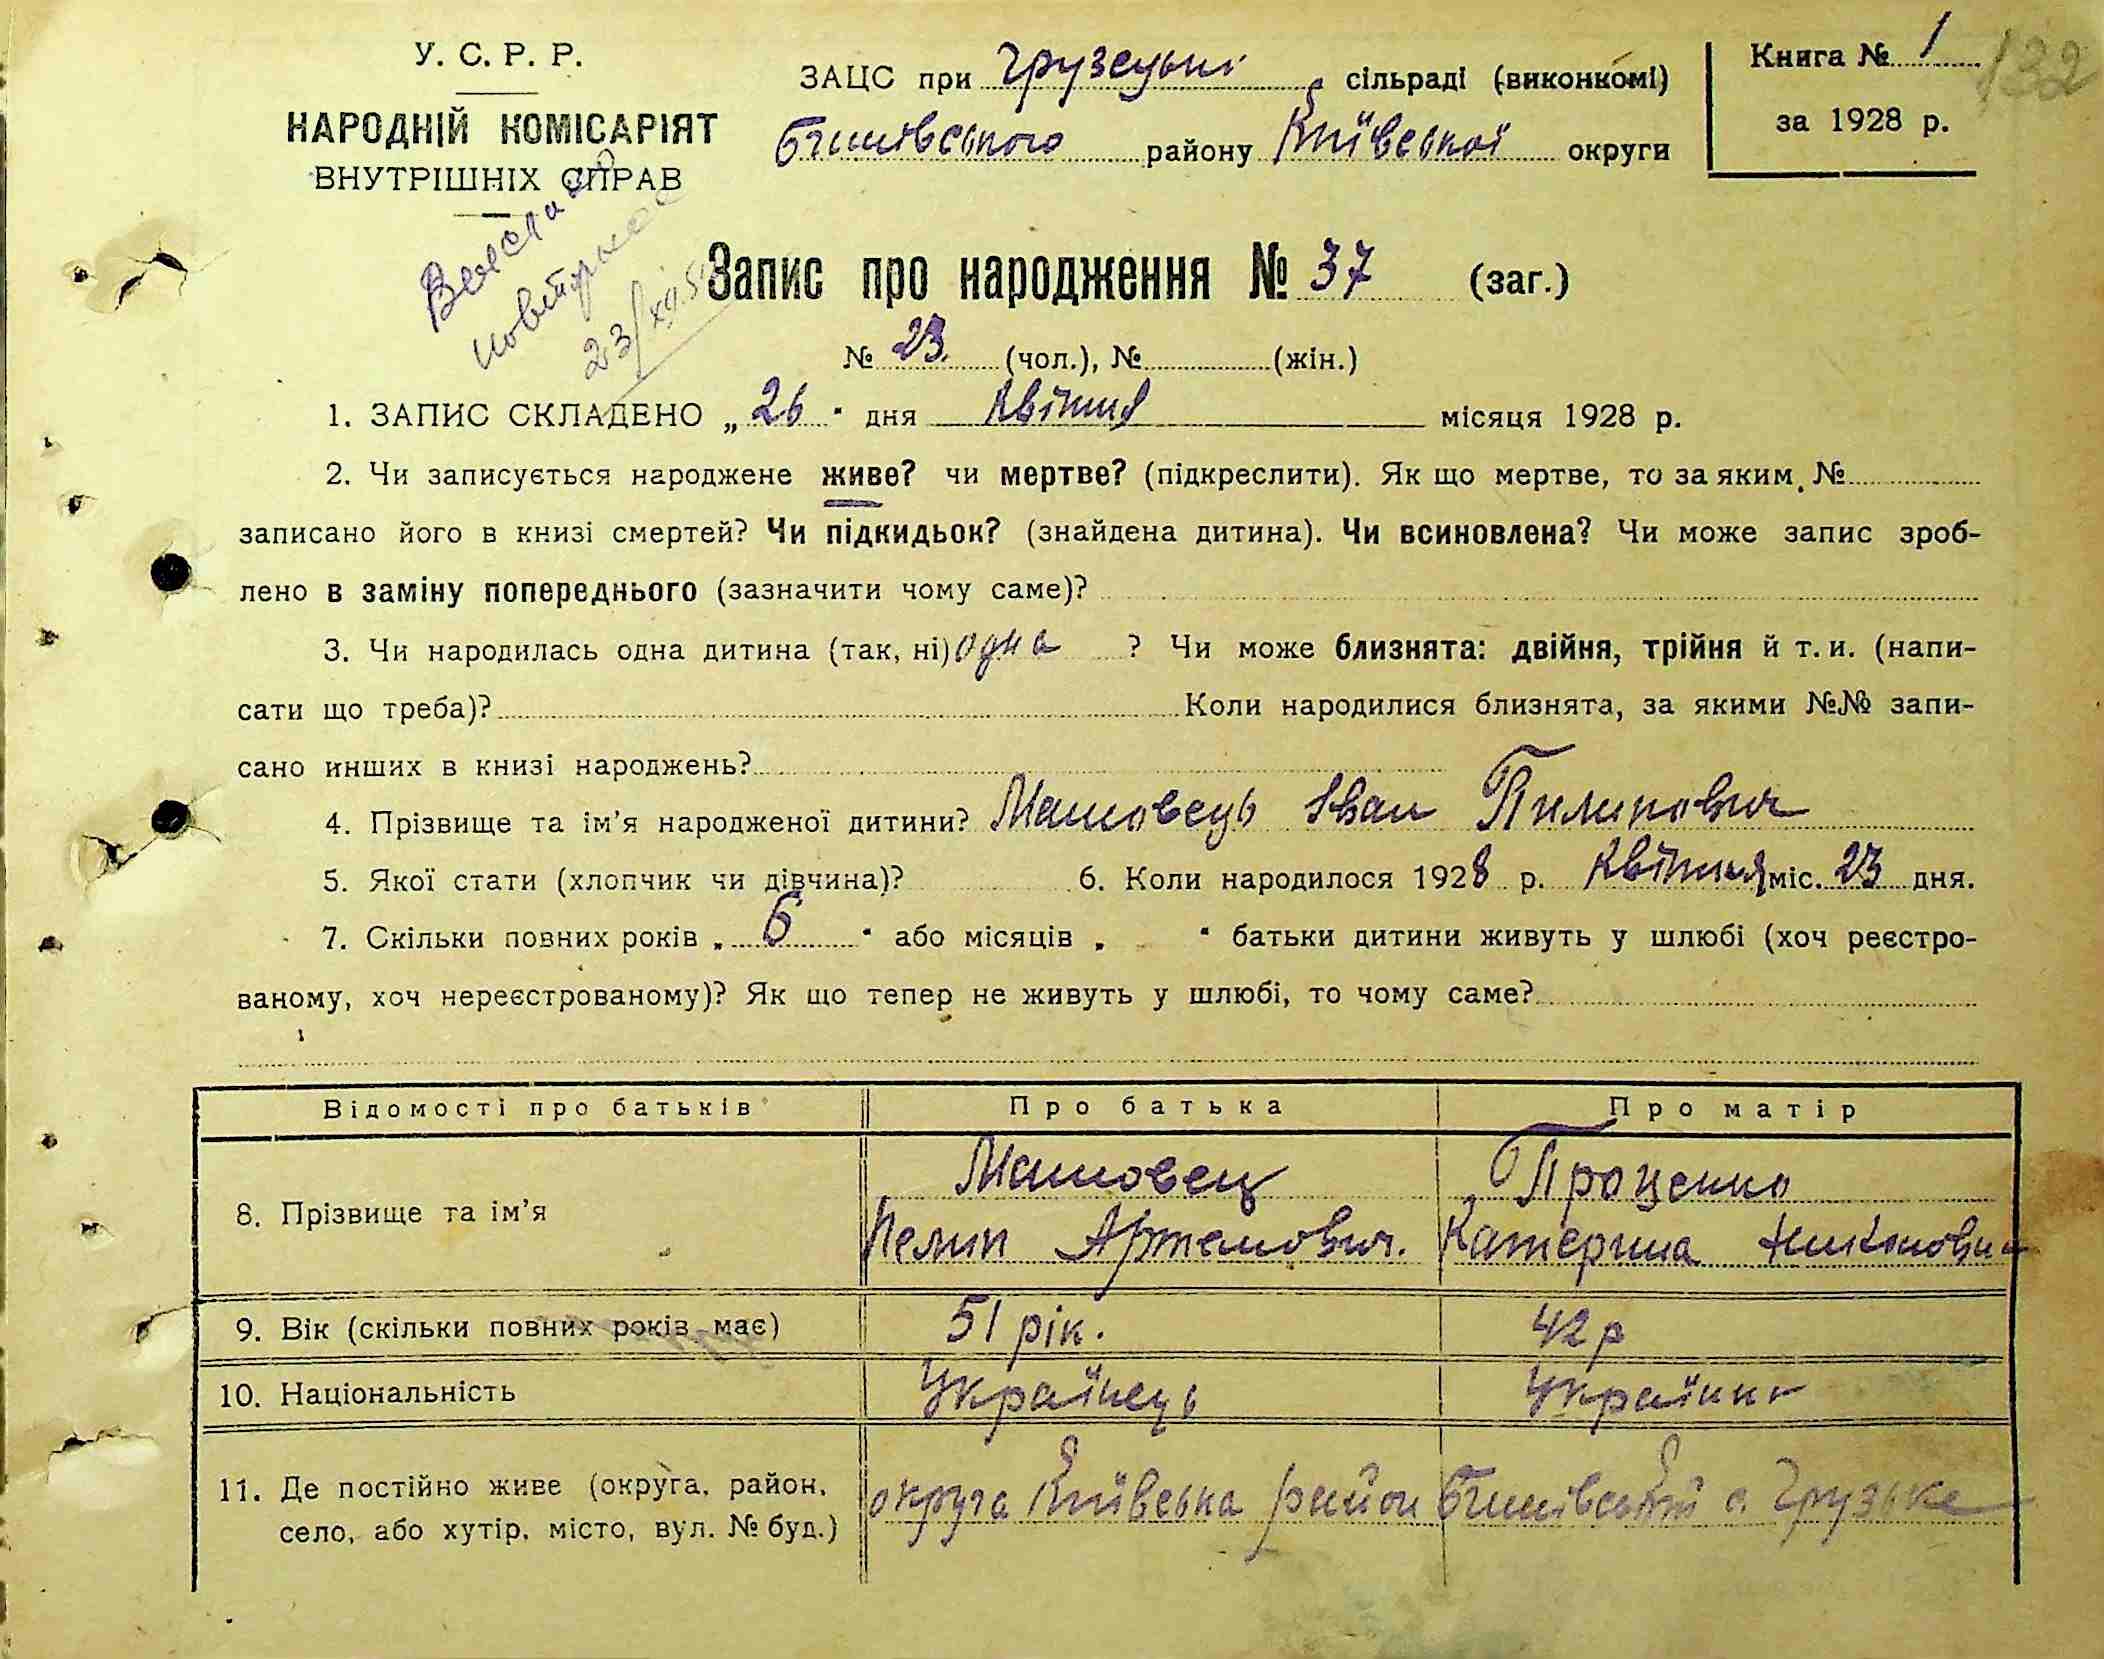 У. С. Р. Р.
НАРОДНІЙ КОМІСАРІЯТ
ВНУТРІШНІХ СПРАВ
ЗАЦС при Грузецькі сільраді (виконкомі)
Бишівського району Київської округи
Книга № 1
за 1928 р.
132
повторное
23/XII.5
Запис про народження № 37 (заг.)
№ 23. (чол.), № (жін.)
1. ЗАПИС СКЛАДЕНО „ 26 " дня Квітня місяця 1928 р.
2. Чи записується народжене живе? чи мертве? (підкреслити). Як що мертве, то за яким №
записано його в книзі смертей? Чи підкидьок? (знайдена дитина). Чи всиновлена? Чи може запис зроб-
лено в заміну попереднього (зазначити чому саме)?
3. Чи народилась одна дитина (так, ні) одна ? Чи може близнята: двійня, трійня й т. и. (напи-
сати що треба)? Коли народилися близнята, за якими №№ запи-
сано инших в книзі народжень?
4. Прізвище та ім'я народженої дитини? Машовець Іван Пилипович
5. Якої стати (хлопчик чи дівчина)? 6. Коли народилося 1928 р. Квітня міс. 23 дня.
7. Скільки повних років „ 6 " або місяців „ " батьки дитини живуть у шлюбі (хоч реєстро-
ваному, хоч нереєстрованому)? Як що тепер не живуть у шлюбі, то чому саме?
Відомості про батьків Про батька Про матір
8. Прізвище та ім'я Машовец Проценко
Пелип Артемович. Катерина
9. Вік (скільки повних років має) 51 рік. 42 р
10. Національність Українець Українка
11. Де постійно живе (округа, район, село, або хутір, місто, вул. № буд.) округа Київська район Бишівський с. Грузьке